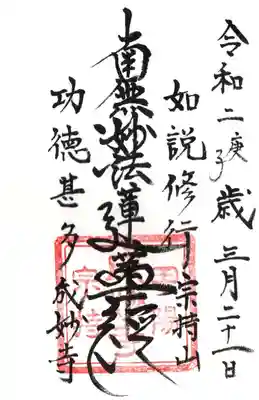 令和二庚子歳 三月二十一日
如説修行 宗持山
南無妙法蓮華經
功徳甚多 成妙寺